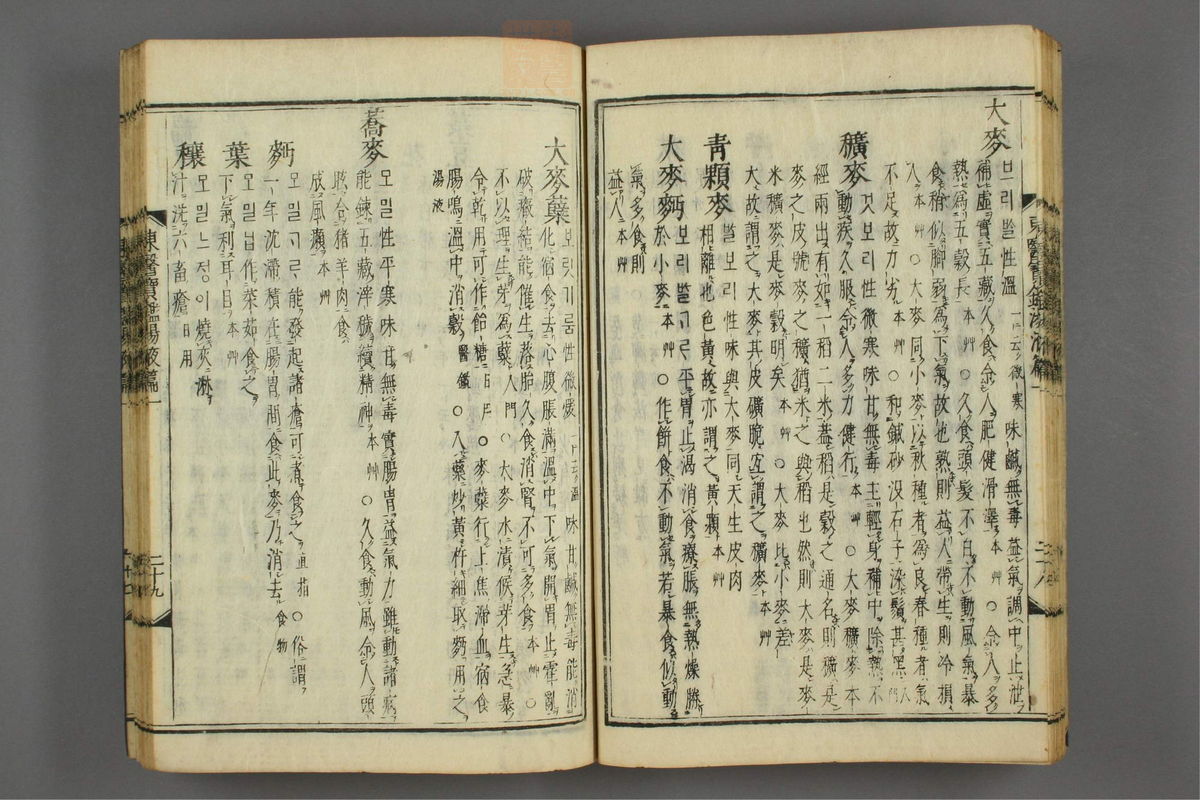 大麥 보리쌀 性溫 一云微寒 味鹹無毒益氣調中止泄
補虛實五藏久食令人肥健滑澤 本艸 ○令人多
熱爲五穀長 本艸 ○久食頭髮不白不動風氣暴
食稍似脚弱爲下氣故也熟則益人帶生則冷損
人 本艸 ○大麥同小麥以秋種者爲良春種者氣
不足故力劣 本艸 ○和鍼砂没石子染鬚甚黑 入門
穬麥 것보리 性微寒味甘無毒主輕身補中除熱不
動疾久服令人多力健行 本艸 ○大麥穬麥本
經兩出有如一稻二米蓋稻是穀之通名則穬是
麥之皮號麥之穬猶米之與稻也然則大麥是麥
米穬麥是麥穀明矣 本艸 ○大麥比小麥差
大故謂之大麥其皮礦脆宜謂之穬麥 本艸
靑顆麥 쌀보리 性味與大麥同天生皮肉
相離也色黃故亦謂之黃顆 本艸
大麥麪 보리쌀ᄀᆞᄅᆞ 平胃止渴消食療脹無熱燥勝
於小麥 本艸 ○作餠食不動氣若暴食似動
氣多食則
益人 本艸
東醫寶鑑湯液篇一
二十八
大麥蘗 보릿기룸 性微煖 一云溫 味甘鹹無毒能消
化宿食去心腹脹滿溫中下氣開胃止霍亂
破癥結能催生落胎久食消腎不可多食 本艸 ○
不以理生芽爲蘗 入門 ○大麥水漬候芽生急暴
令乾用可作飴糖 日用 ○麥蘗行上焦滯血宿食
腸鳴溫中消穀 醫鑑 ○入藥炒黃杵細取麪用之
湯液
蕎麥 모밀 性平寒味甘無毒實腸胃益氣力雖動諸病
能鍊五藏滓穢續精神 本艸 ○久食動風令人頭
眩合猪羊肉食
成風癩 本艸
麪 모밀ᄀᆞᄅᆞ 能發起諸瘡可煮食之 直指 ○俗謂
一年沈滯積在腸胃間食此麥乃消去 食物
葉 모밀닙 作菜茹食之
下氣利耳目 本艸
穰 모밀느정이 燒灰淋
汁洗六畜瘡 日用
東醫寶鑑湯液篇一
二十九